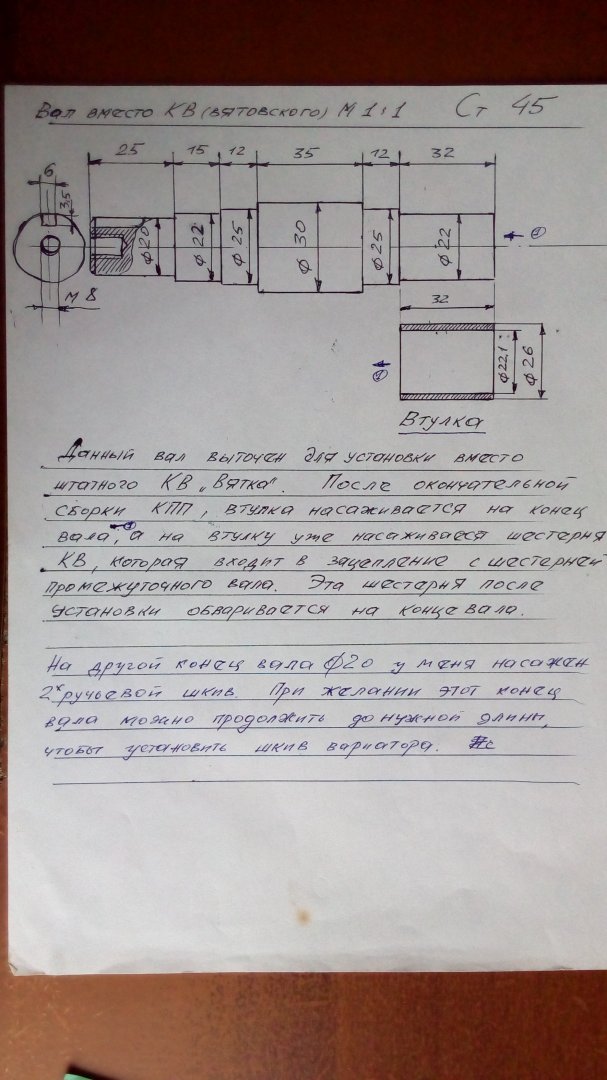 Вал вместо КВ (вятовского) М 1:1 Ст 45
25 15 12 35 12 32
6
3,5
ф20 ф22 ф25 ф30 ф25 ф22
М 8
32
ф22,1 ф26
Втулка
Данный вал выточен для установки вместо
штатного КВ „Вятка". После окончательной
сборки КПП, втулка насаживается на конец
вала, а на втулку уже насаживаеся шестерня
КВ, которая входит в зацепление с шестерней
промежуточного вала. Эта шестерня после
установки обваривается на конце вала.
На другой конец вала ф20 у меня насажен
2х ручьевой шкив. При желании этот конец
вала можно продолжить до нужной длины,
чтобы установить шкив вариатора.